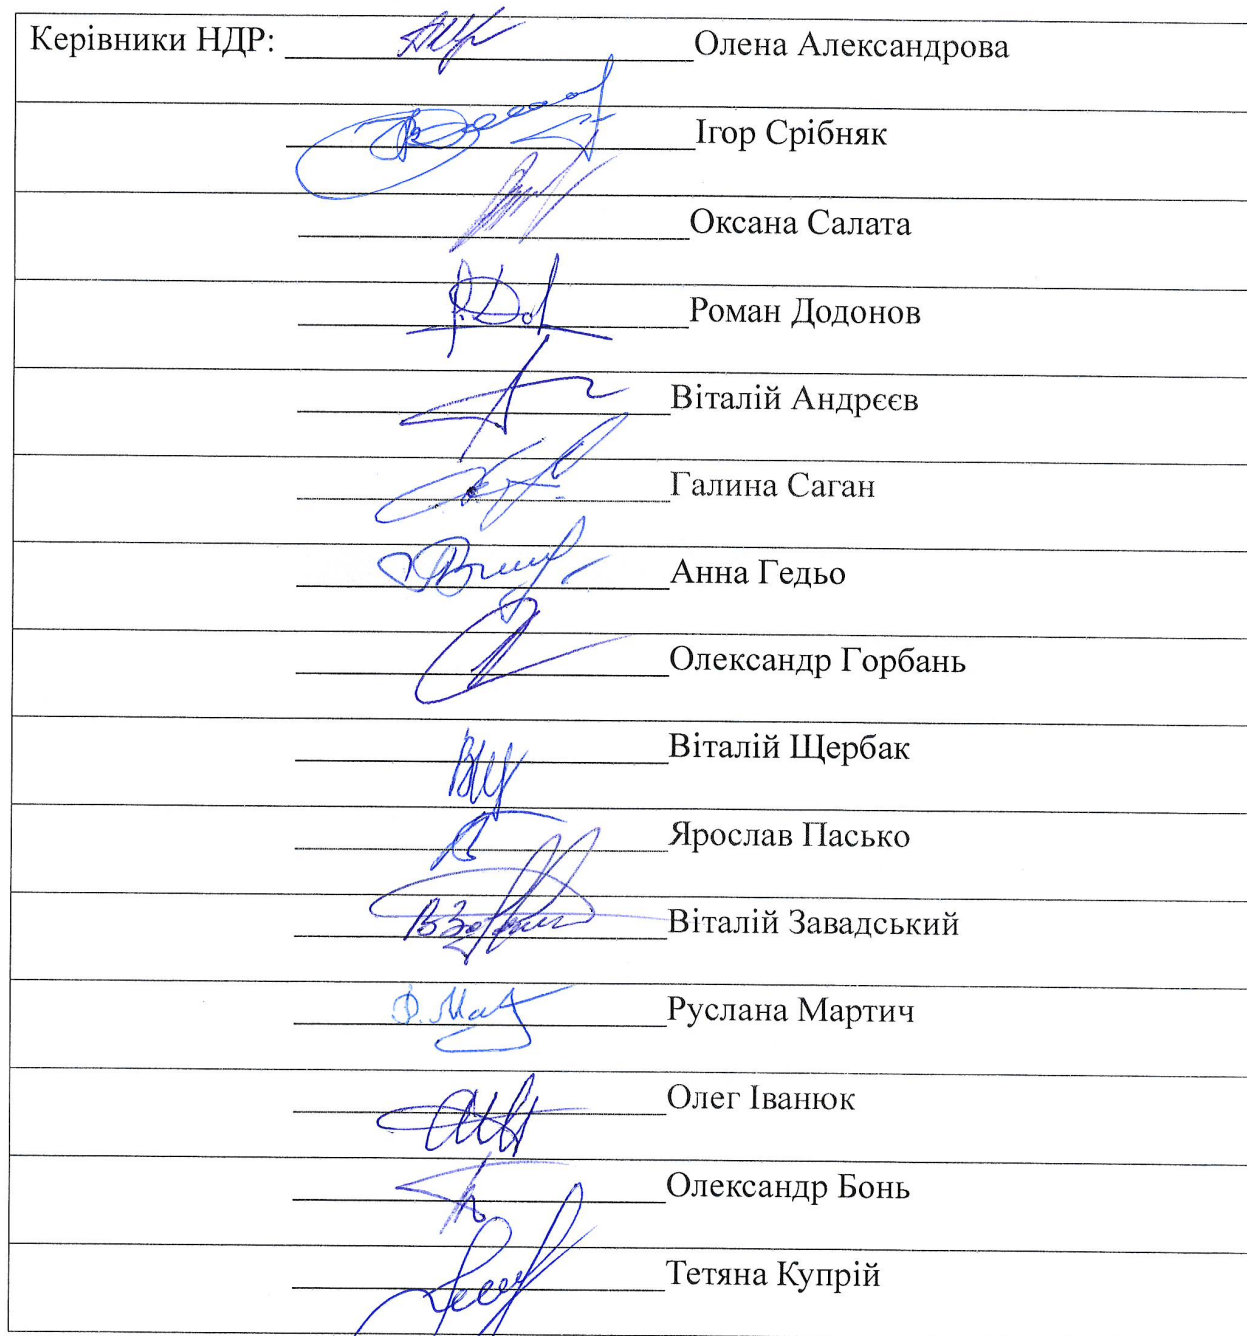 Керівники НДР: Олена Александрова
Ігор Срібняк
Оксана Салата
Роман Додонов
Віталій Андрєєв
Галина Саган
Анна Гедьо
Олександр Горбань
Віталій Щербак
Ярослав Пасько
Віталій Завадський
Руслана Мартич
Олег Іванюк
Олександр Бонь
Тетяна Купрій